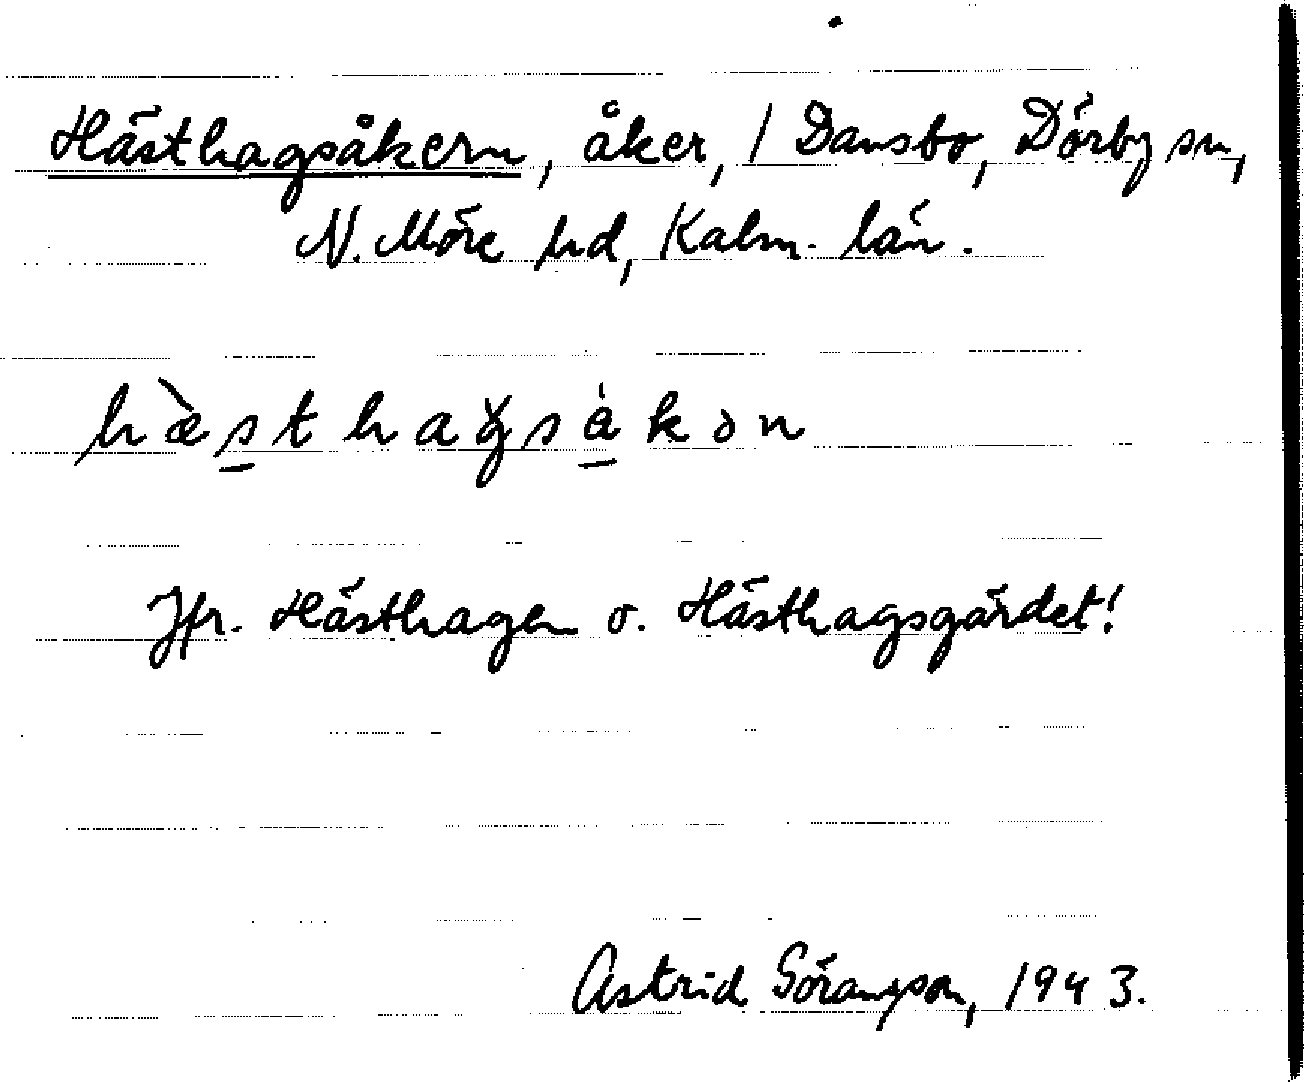 Hästhagsåkern, åker, / Dansbo, Dörby sn,
N. Möre hd, Kalm. län.
hæ̀sthaɣsåkən
Jfr. Hästhagen o. Hästhagsgärdet!
Astrid Göransson, 1943.